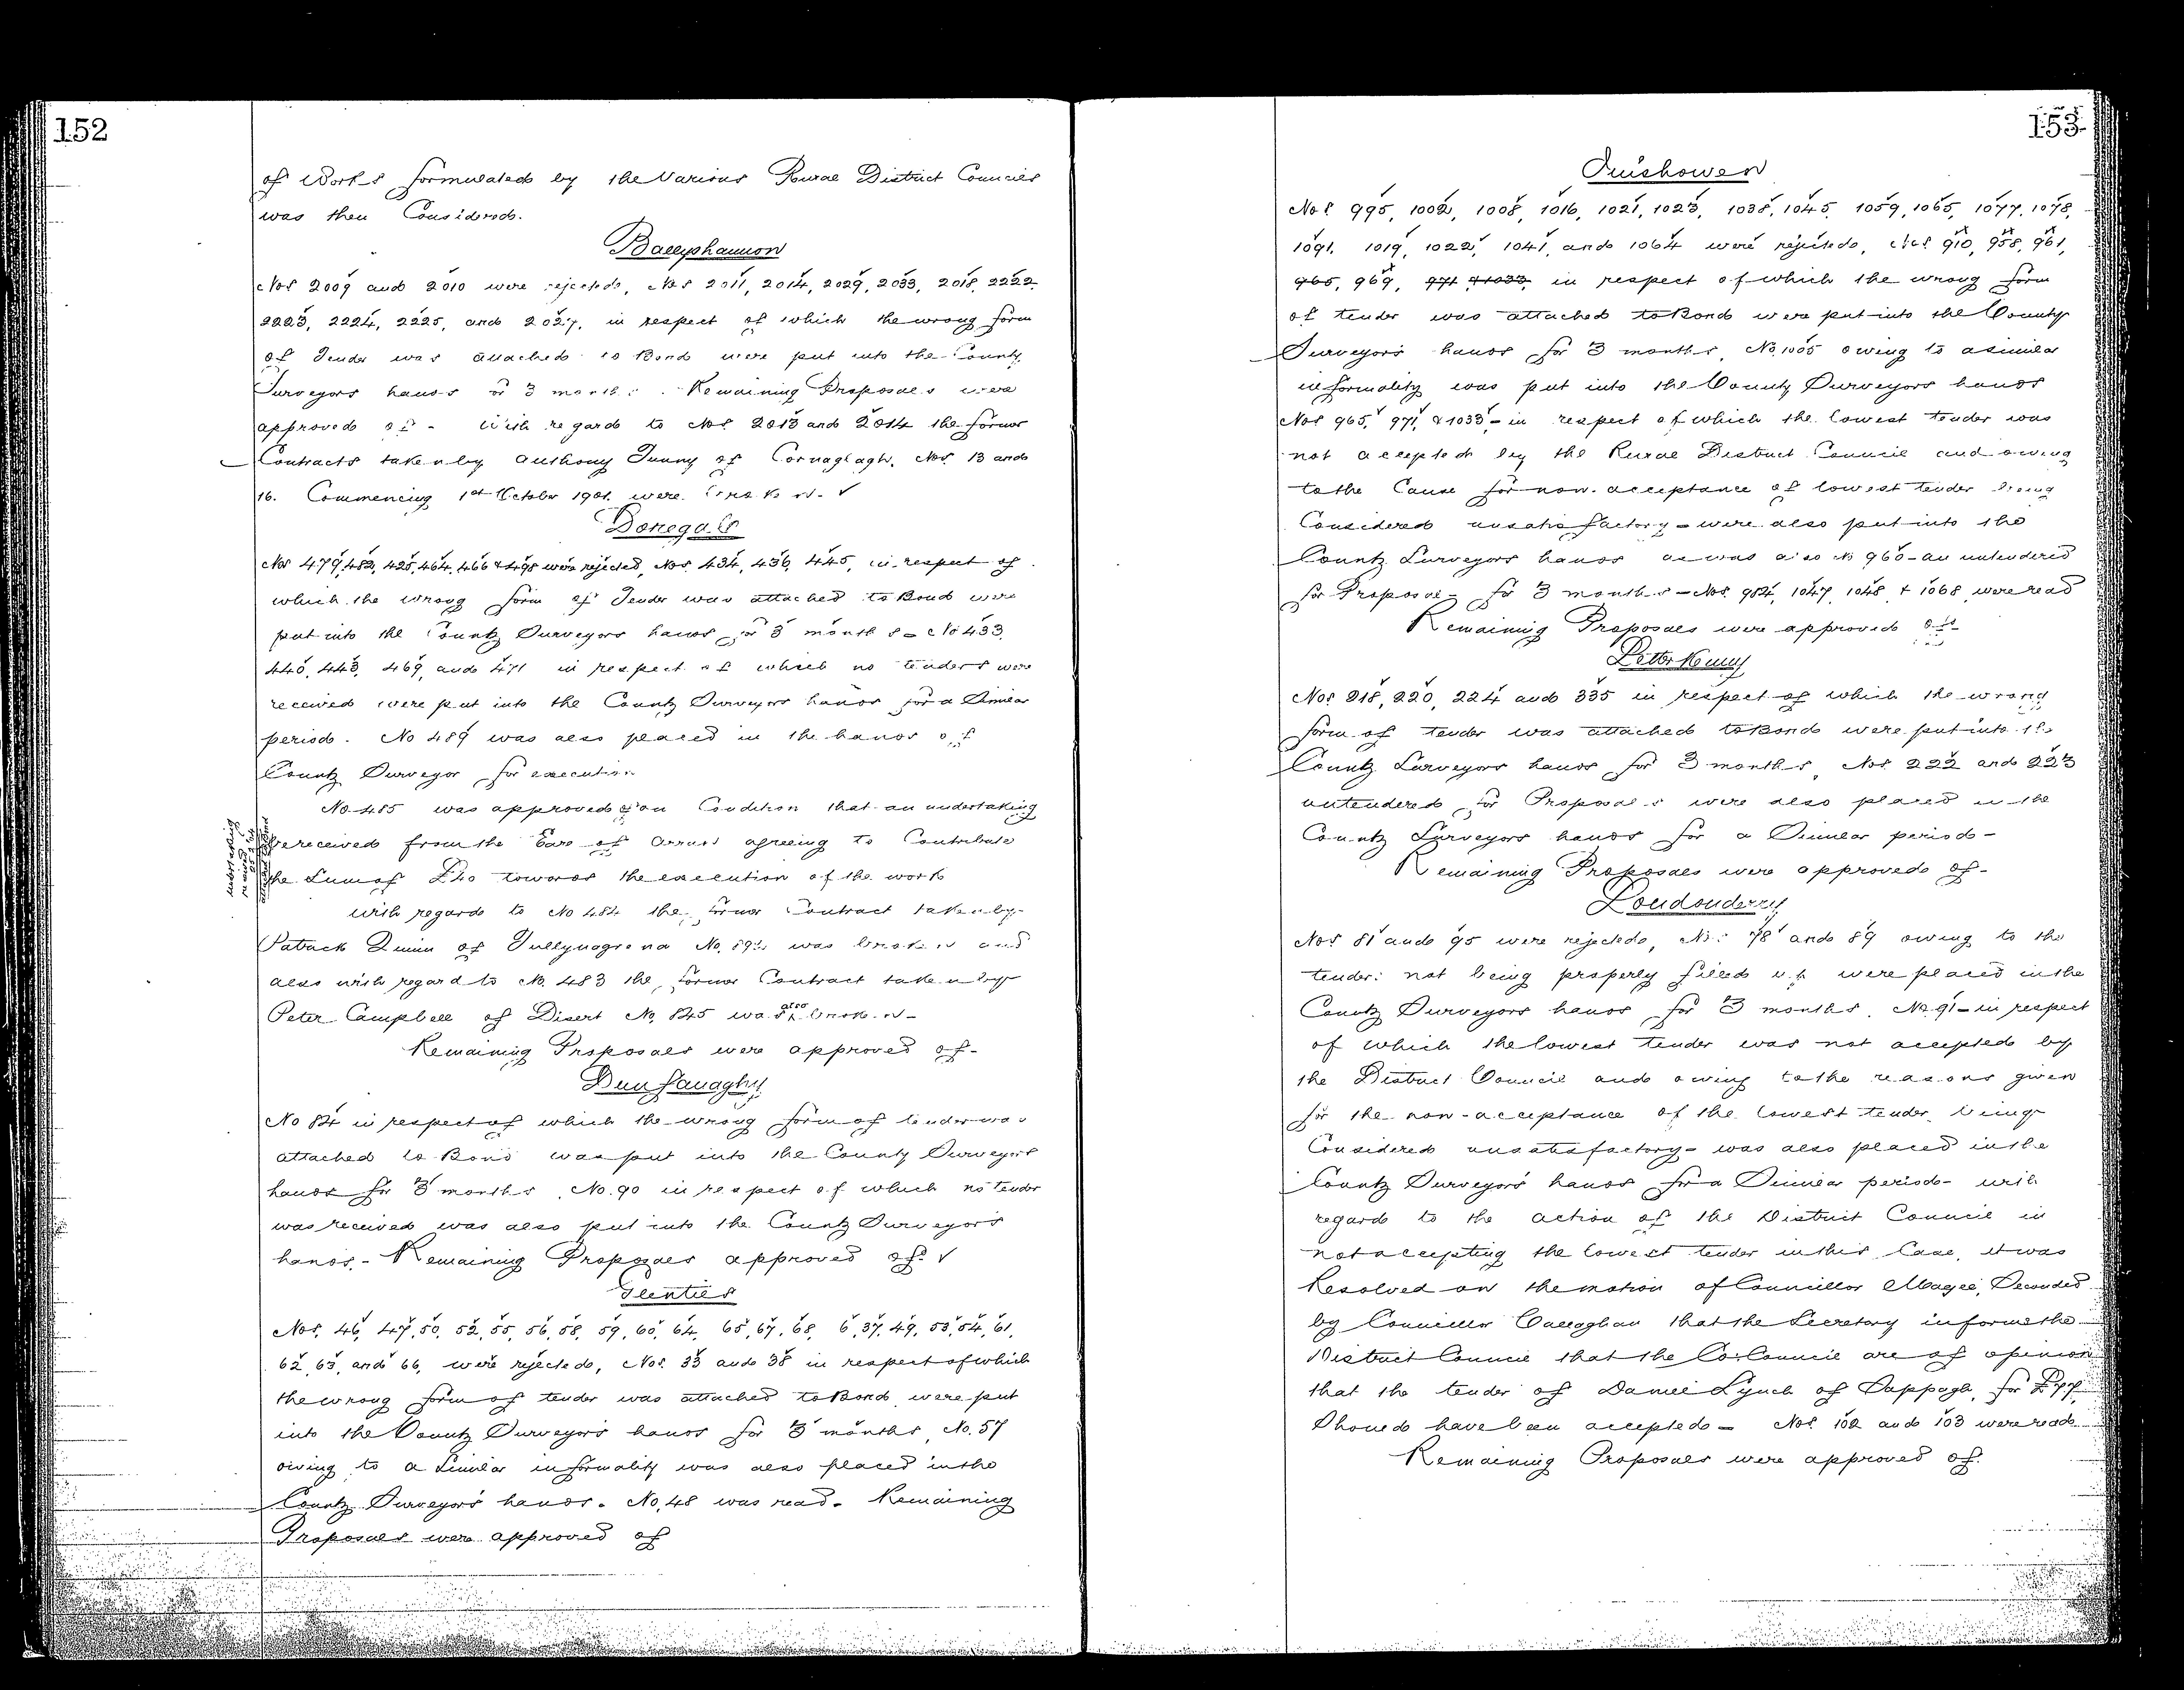 152
of Works formulated by the Various Rural District Councils
was then Considered.
Ballyshannon
Nos 2009 and 2010 were rejected, Nos 2011, 2014, 2029, 2033, 2018, 2222
2223, 2224, 2225, and 2027, in respect of which the wrong form
of Tender was attached to Bond were put into the County
Surveyors hands for 3 months. Remaining Proposals were
approved of - With regard to Nos 2013 and 2014 the former
Contracts taken by Anthony Tunny of Cornaglagh. Nos 13 and
16. Commencing 1st October 1901 were broken.
Donegal
Nos 479, 482, 425, 464, 466 & 498 were rejected, Nos 434, 436, 445, in respect of
which the wrong form of Tender was attached to Bond were
put into the County Surveyors hands for 3 months - No 433,
440, 443, 469, and 471 in respect of which no tenders were
received were put into the County Surveyors hands for a Similar
period. No 489 was also placed in the hands of
County Surveyor for execution
No 485 was approved of on Condition that an undertaking
be received from the Earl of Arran agreeing to Contribute
the Sum of £40 towards the execution of the work
undertaking received
With regard to No 484 the former Contract taken by
Patrick Quinn of Tullynagreena No. 892 was broken and
also with regard to No. 483 the former Contract taken by
Peter Campbell of Disert No. 845 was also broken -
Remaining Proposals were approved of -
Dunfanaghy
No 84 in respect of which the wrong form of tender was
attached to Bond was put into the County Surveyors
hands for 3 months, No. 90 in respect of which no tender
was received was also put into the County Surveyor's
hands. - Remaining Proposals approved of.
Glenties
Nos. 46, 47, 50, 52, 55, 56, 58, 59, 60, 64, 65, 67, 68, 6, 37, 49, 53, 54, 61,
62, 63, and 66, were rejected, Nos. 33 and 38 in respect of which
the wrong form of tender was attached to Bond were put
into the County Surveyor's hands for 3 months, No. 57
owing to a Similar informality was also placed in the
County Surveyor's hands. No. 48 was read. Remaining
Proposals were approved of
153
Inishowen
Nos. 995, 1002, 1008, 1016, 1021, 1023, 1038, 1045, 1059, 1065, 1077, 1078,
1091, 1019, 1022, 1041, and 1064 were rejected, Nos 910, 958, 961,
965, 969, 971 & 1033, in respect of which the wrong form
of tender was attached to Bond were put into the County
Surveyor's hands for 3 months, No. 1005 owing to a similar
informality was put into the County Surveyors hands
Nos 965, 971, & 1033 - in respect of which the lowest tender was
not accepted by the Rural District Council and owing
to the Cause for non-acceptance of lowest tender being
Considered unsatisfactory - were also put into the
County Surveyors hands as was also No 960 - an untendered
for Proposal - for 3 months - Nos. 984, 1047, 1048 & 1068 were read
Remaining Proposals were approved of
Letterkenny
Nos 218, 220, 224 and 335 in respect of which the wrong
form of tender was attached to Bond were put into the
County Surveyors hands for 3 months, Nos 222 and 223
untendered for Proposals were also placed in the
County Surveyors hands for a Similar period -
Remaining Proposals were approved of -
Londonderry
Nos 81 and 95 were rejected, Nos 78 and 89 owing to the
tenders not being properly filled up were placed in the
County Surveyors hands for 3 months. No. 91 - in respect
of which the lowest tender was not accepted by
the District Council and owing to the reasons given
for the non-acceptance of the lowest tender being
Considered unsatisfactory - was also placed in the
County Surveyor's hands for a Similar period - with
regard to the action of the District Council in
not accepting the lowest tender in this Case, it was
Resolved on the motion of Councillor Magee, Seconded
by Councillor Callaghan that the Secretary inform the
District Council that the Co: Council are of opinion
that the tender of Daniel Lynch of Cappagh, for
Should have been accepted - Nos 102 and 103 were read
Remaining Proposals were approved of.